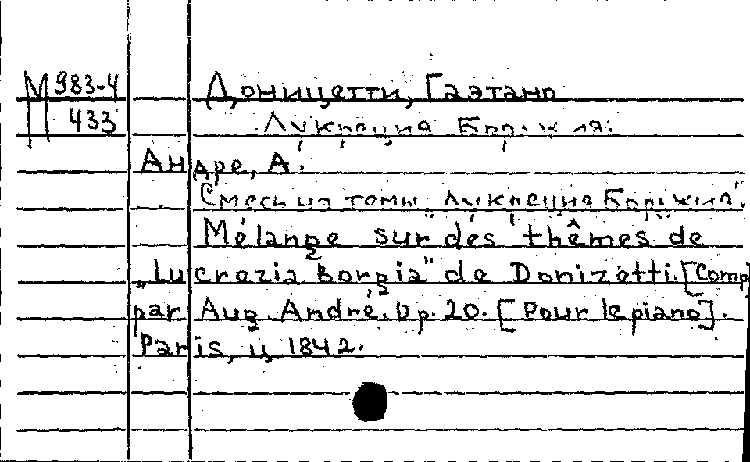 М 983-4
433
Доницетти, Гаэтано
Лукреция Борджия.
Андре, А.
Смесь из темы „Лукреция Борджия".
Mélange sur des thêmes de
„Lucrezia Borgia" de Donizetti. [Comp.
par Aug. André. Op. 20. [Pour le piano].
Paris, ц 1842.